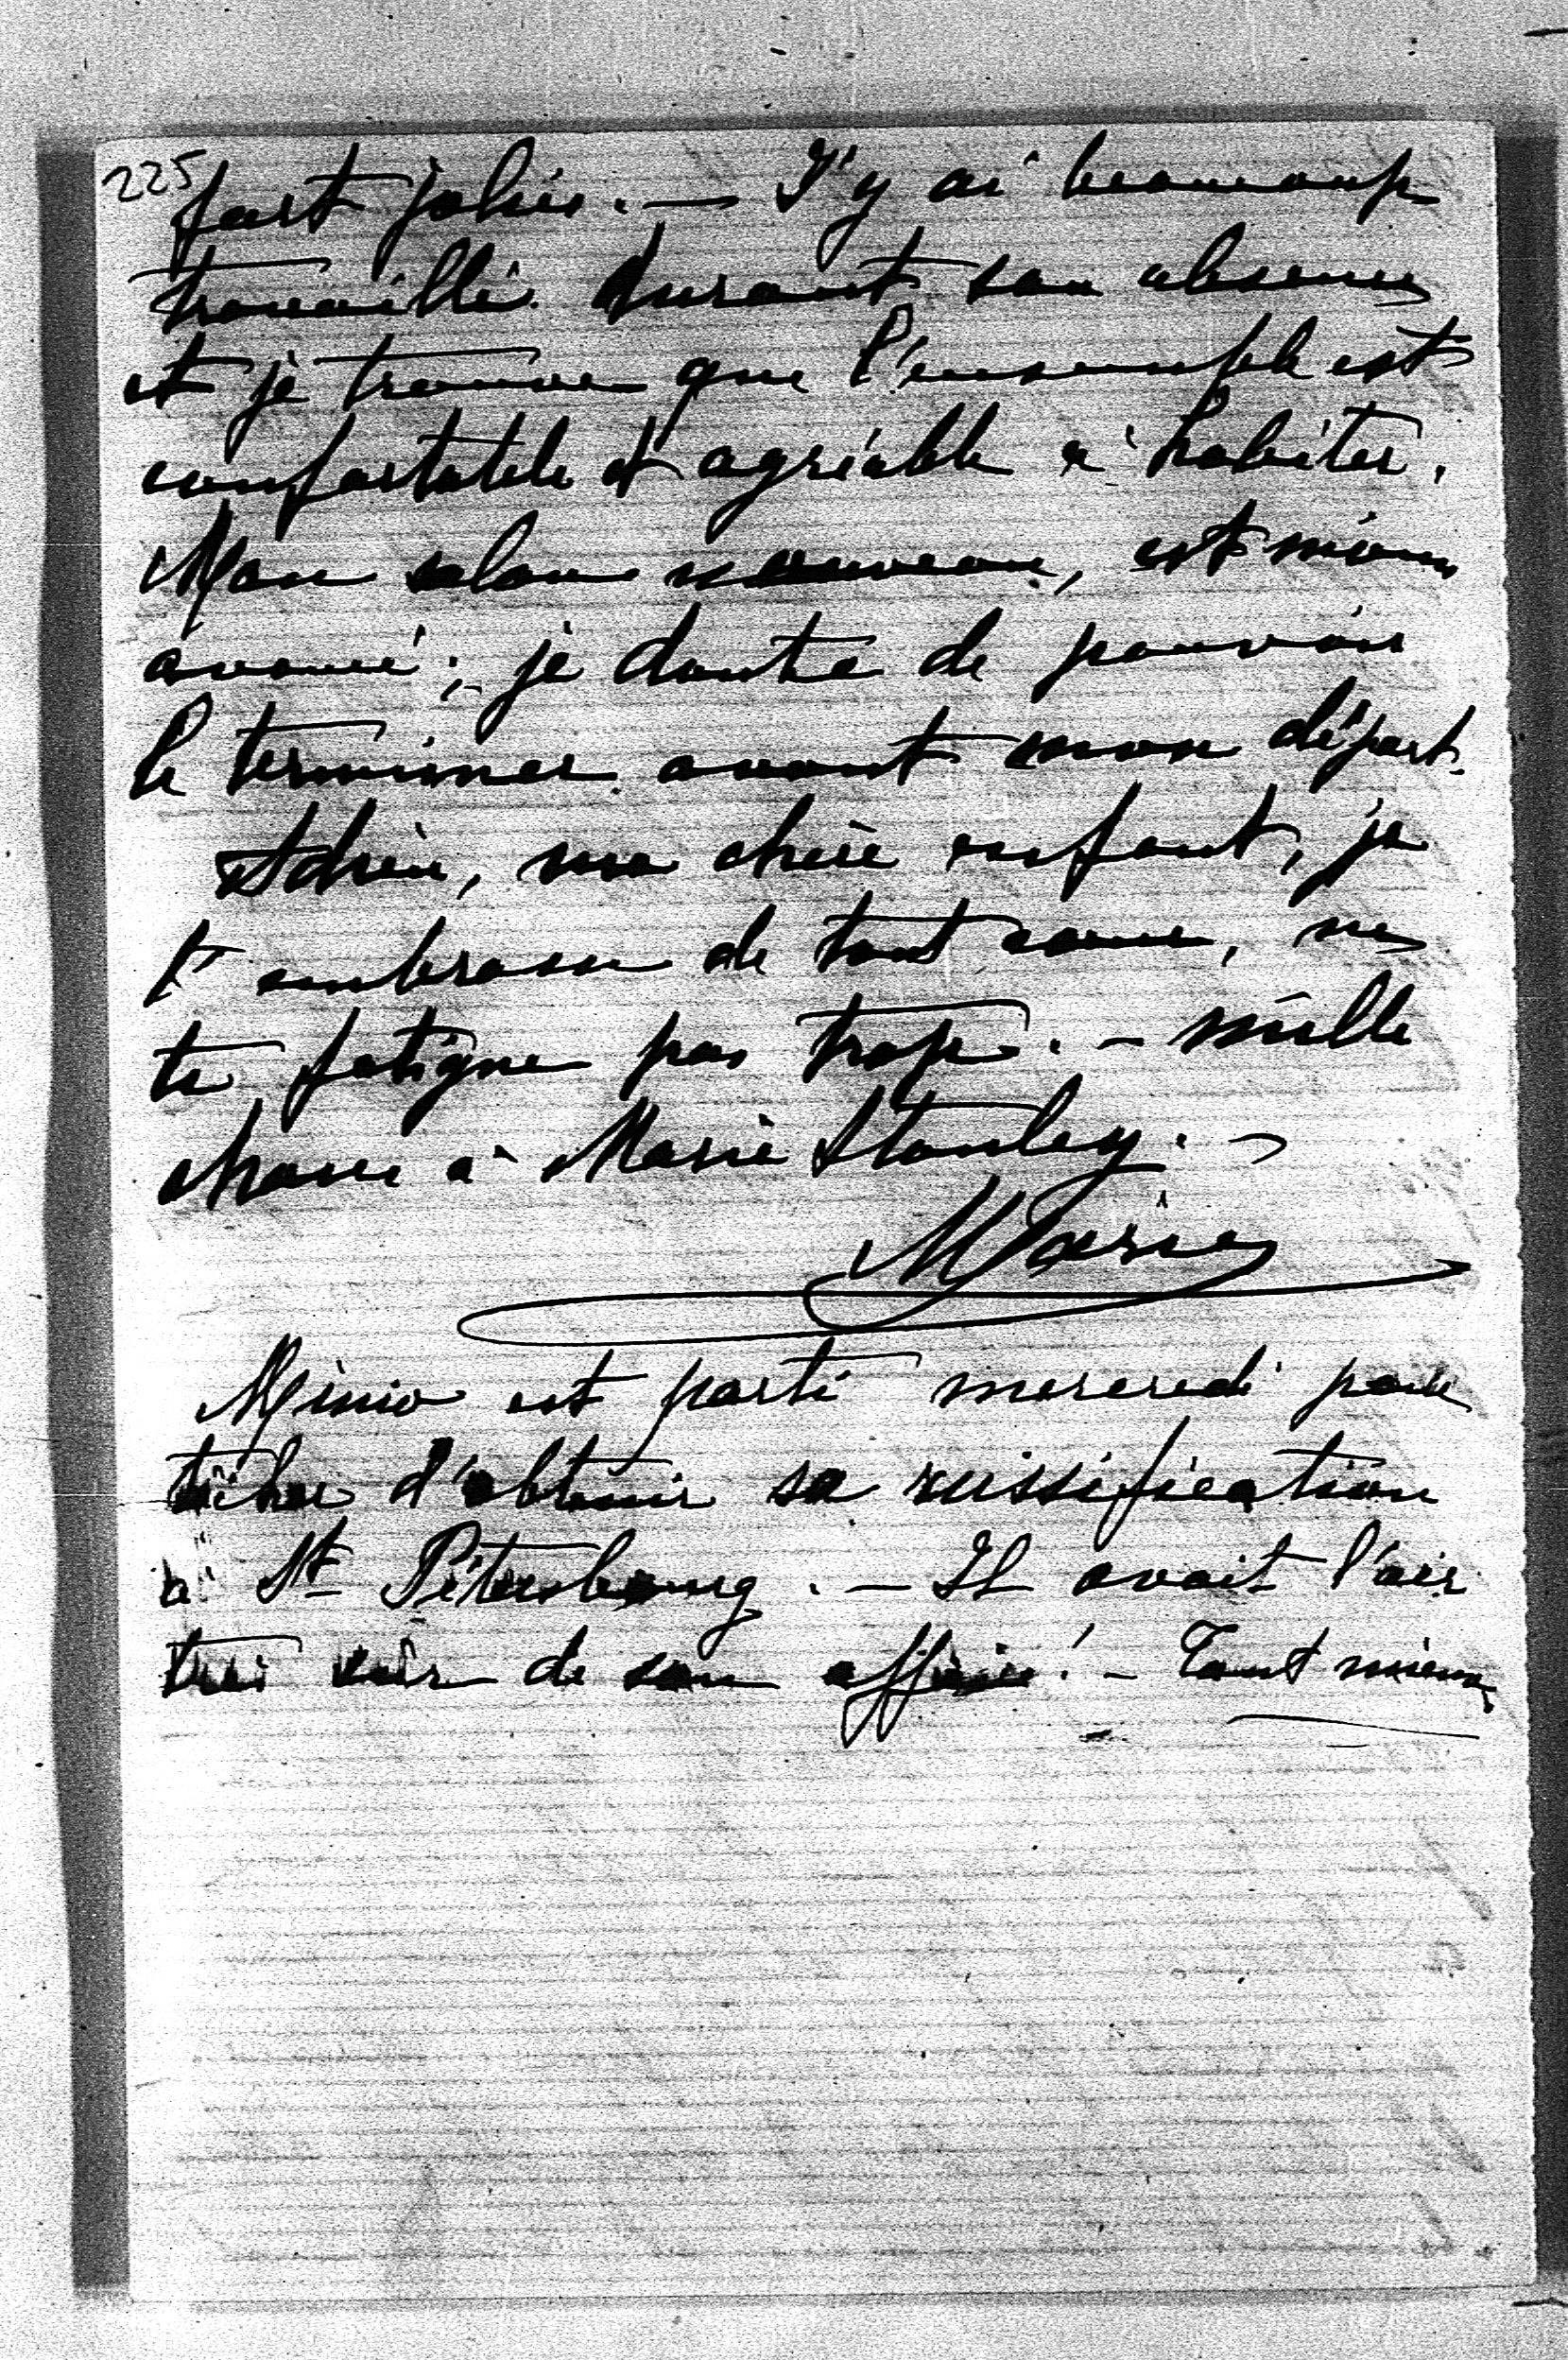 225
fort jolies. — J'y ai beaucoup
travaillé durant son absence
et je trouve que l'ensemble est
confortable et agréable à habiter.
Mon salon nouveau, est moins
avancé; je doute de pouvoir
le terminer avant mon départ.
Adieu, ma chère enfant, je
t'embrasse de tout coeur, ne
te fatigue pas trop. — mille
choses à Marie Stanley. —
Marie
est parti mercredi pour
tâcher d'obtenir sa russification
à St Pétersbourg. — Il avait l'air
très sûr de son affaire! — Tant mieux